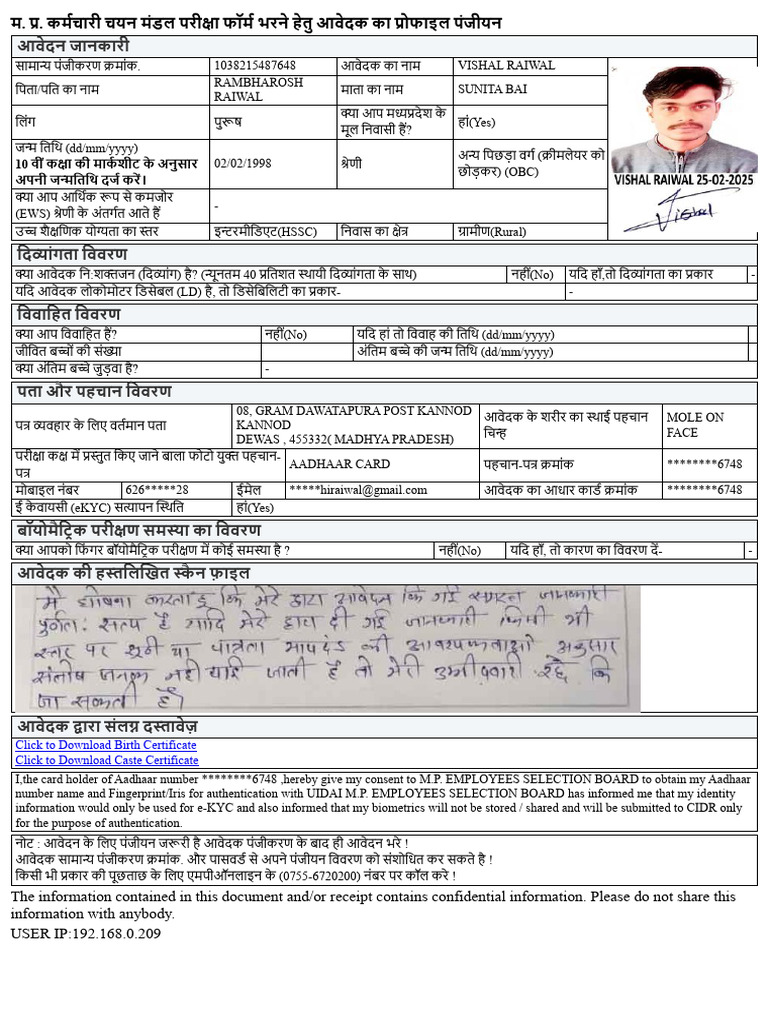 म. प्र. कर्मचारी चयन मंडल परीक्षा फॉर्म भरने हेतु आवेदक का प्रोफाइल पंजीयन
आवेदन जानकारी
सामान्य पंजीकरण क्रमांक. 1038215487648 आवेदक का नाम VISHAL RAIWAL
पिता/पति का नाम RAMBHAROSH RAIWAL माता का नाम SUNITA BAI
लिंग पुरूष क्या आप मध्यप्रदेश के मूल निवासी हैं? हां(Yes)
जन्म तिथि (dd/mm/yyyy)
10 वीं कक्षा की मार्कशीट के अनुसार अपनी जन्मतिथि दर्ज करें। 02/02/1998 श्रेणी अन्य पिछड़ा वर्ग (क्रीमलेयर को छोड़कर) (OBC)
VISHAL RAIWAL 25-02-2025
Vishal
क्या आप आर्थिक रूप से कमजोर (EWS) श्रेणी के अंतर्गत आते हैं -
उच्च शैक्षणिक योग्यता का स्तर इन्टरमीडिएट(HSSC) निवास का क्षेत्र ग्रामीण(Rural)
दिव्यांगता विवरण
क्या आवेदक नि:शक्तजन (दिव्यांग) है? (न्यूनतम 40 प्रतिशत स्थायी दिव्यांगता के साथ) नहीं(No) यदि हाँ,तो दिव्यांगता का प्रकार -
यदि आवेदक लोकोमोटर डिसेबल (LD) है, तो डिसेबिलिटी का प्रकार- -
विवाहित विवरण
क्या आप विवाहित हैं? नहीं(No) यदि हां तो विवाह की तिथि (dd/mm/yyyy)
जीवित बच्चों की संख्या अंतिम बच्चे की जन्म तिथि (dd/mm/yyyy)
क्या अंतिम बच्चे जुड़वा है? -
पता और पहचान विवरण
पत्र व्यवहार के लिए वर्तमान पता 08, GRAM DAWATAPURA POST KANNOD KANNOD DEWAS , 455332( MADHYA PRADESH) आवेदक के शरीर का स्थाई पहचान चिन्ह MOLE ON FACE
परीक्षा कक्ष में प्रस्तुत किए जाने बाला फोटो युक्त पहचान-पत्र AADHAAR CARD पहचान-पत्र क्रमांक ********6748
मोबाइल नंबर 626*****28 ईमेल *****hiraiwal@gmail.com आवेदक का आधार कार्ड क्रमांक ********6748
ई केवायसी (eKYC) सत्यापन स्थिति हां(Yes)
बॉयोमैट्रिक परीक्षण समस्या का विवरण
क्या आपको फिंगर बॉयोमैट्रिक परीक्षण में कोई समस्या है ? नहीं(No) यदि हाँ, तो कारण का विवरण दें- -
आवेदक की हस्तलिखित स्कैन फ़ाइल
मै घोषना करता हू कि मेरे द्वारा आवेदन कि गई समस्त जानकारी
पुर्णत: सत्य है यादि मेरे द्वारा दी गई जानकारी किसी भी
स्तर पर झूठी या पात्रता मापदंड की आवश्यकताओ अनुसार
संतोष जनक नही पाई जाती है तो मेरी उम्मीदवारी रद्द कि
जा सकती है।
आवेदक द्वारा संलग्न दस्तावेज़
Click to Download Birth Certificate
Click to Download Caste Certificate
I,the card holder of Aadhaar number ********6748 ,hereby give my consent to M.P. EMPLOYEES SELECTION BOARD to obtain my Aadhaar
number name and Fingerprint/Iris for authentication with UIDAI M.P. EMPLOYEES SELECTION BOARD has informed me that my identity
information would only be used for e-KYC and also informed that my biometrics will not be stored / shared and will be submitted to CIDR only
for the purpose of authentication.
नोट : आवेदन के लिए पंजीयन जरूरी है आवेदक पंजीकरण के बाद ही आवेदन भरे !
आवेदक सामान्य पंजीकरण क्रमांक. और पासवर्ड से अपने पंजीयन विवरण को संशोधित कर सकते है !
किसी भी प्रकार की पूछताछ के लिए एमपीऑनलाइन के (0755-6720200) नंबर पर कॉल करे !
The information contained in this document and/or receipt contains confidential information. Please do not share this
information with anybody.
USER IP:192.168.0.209